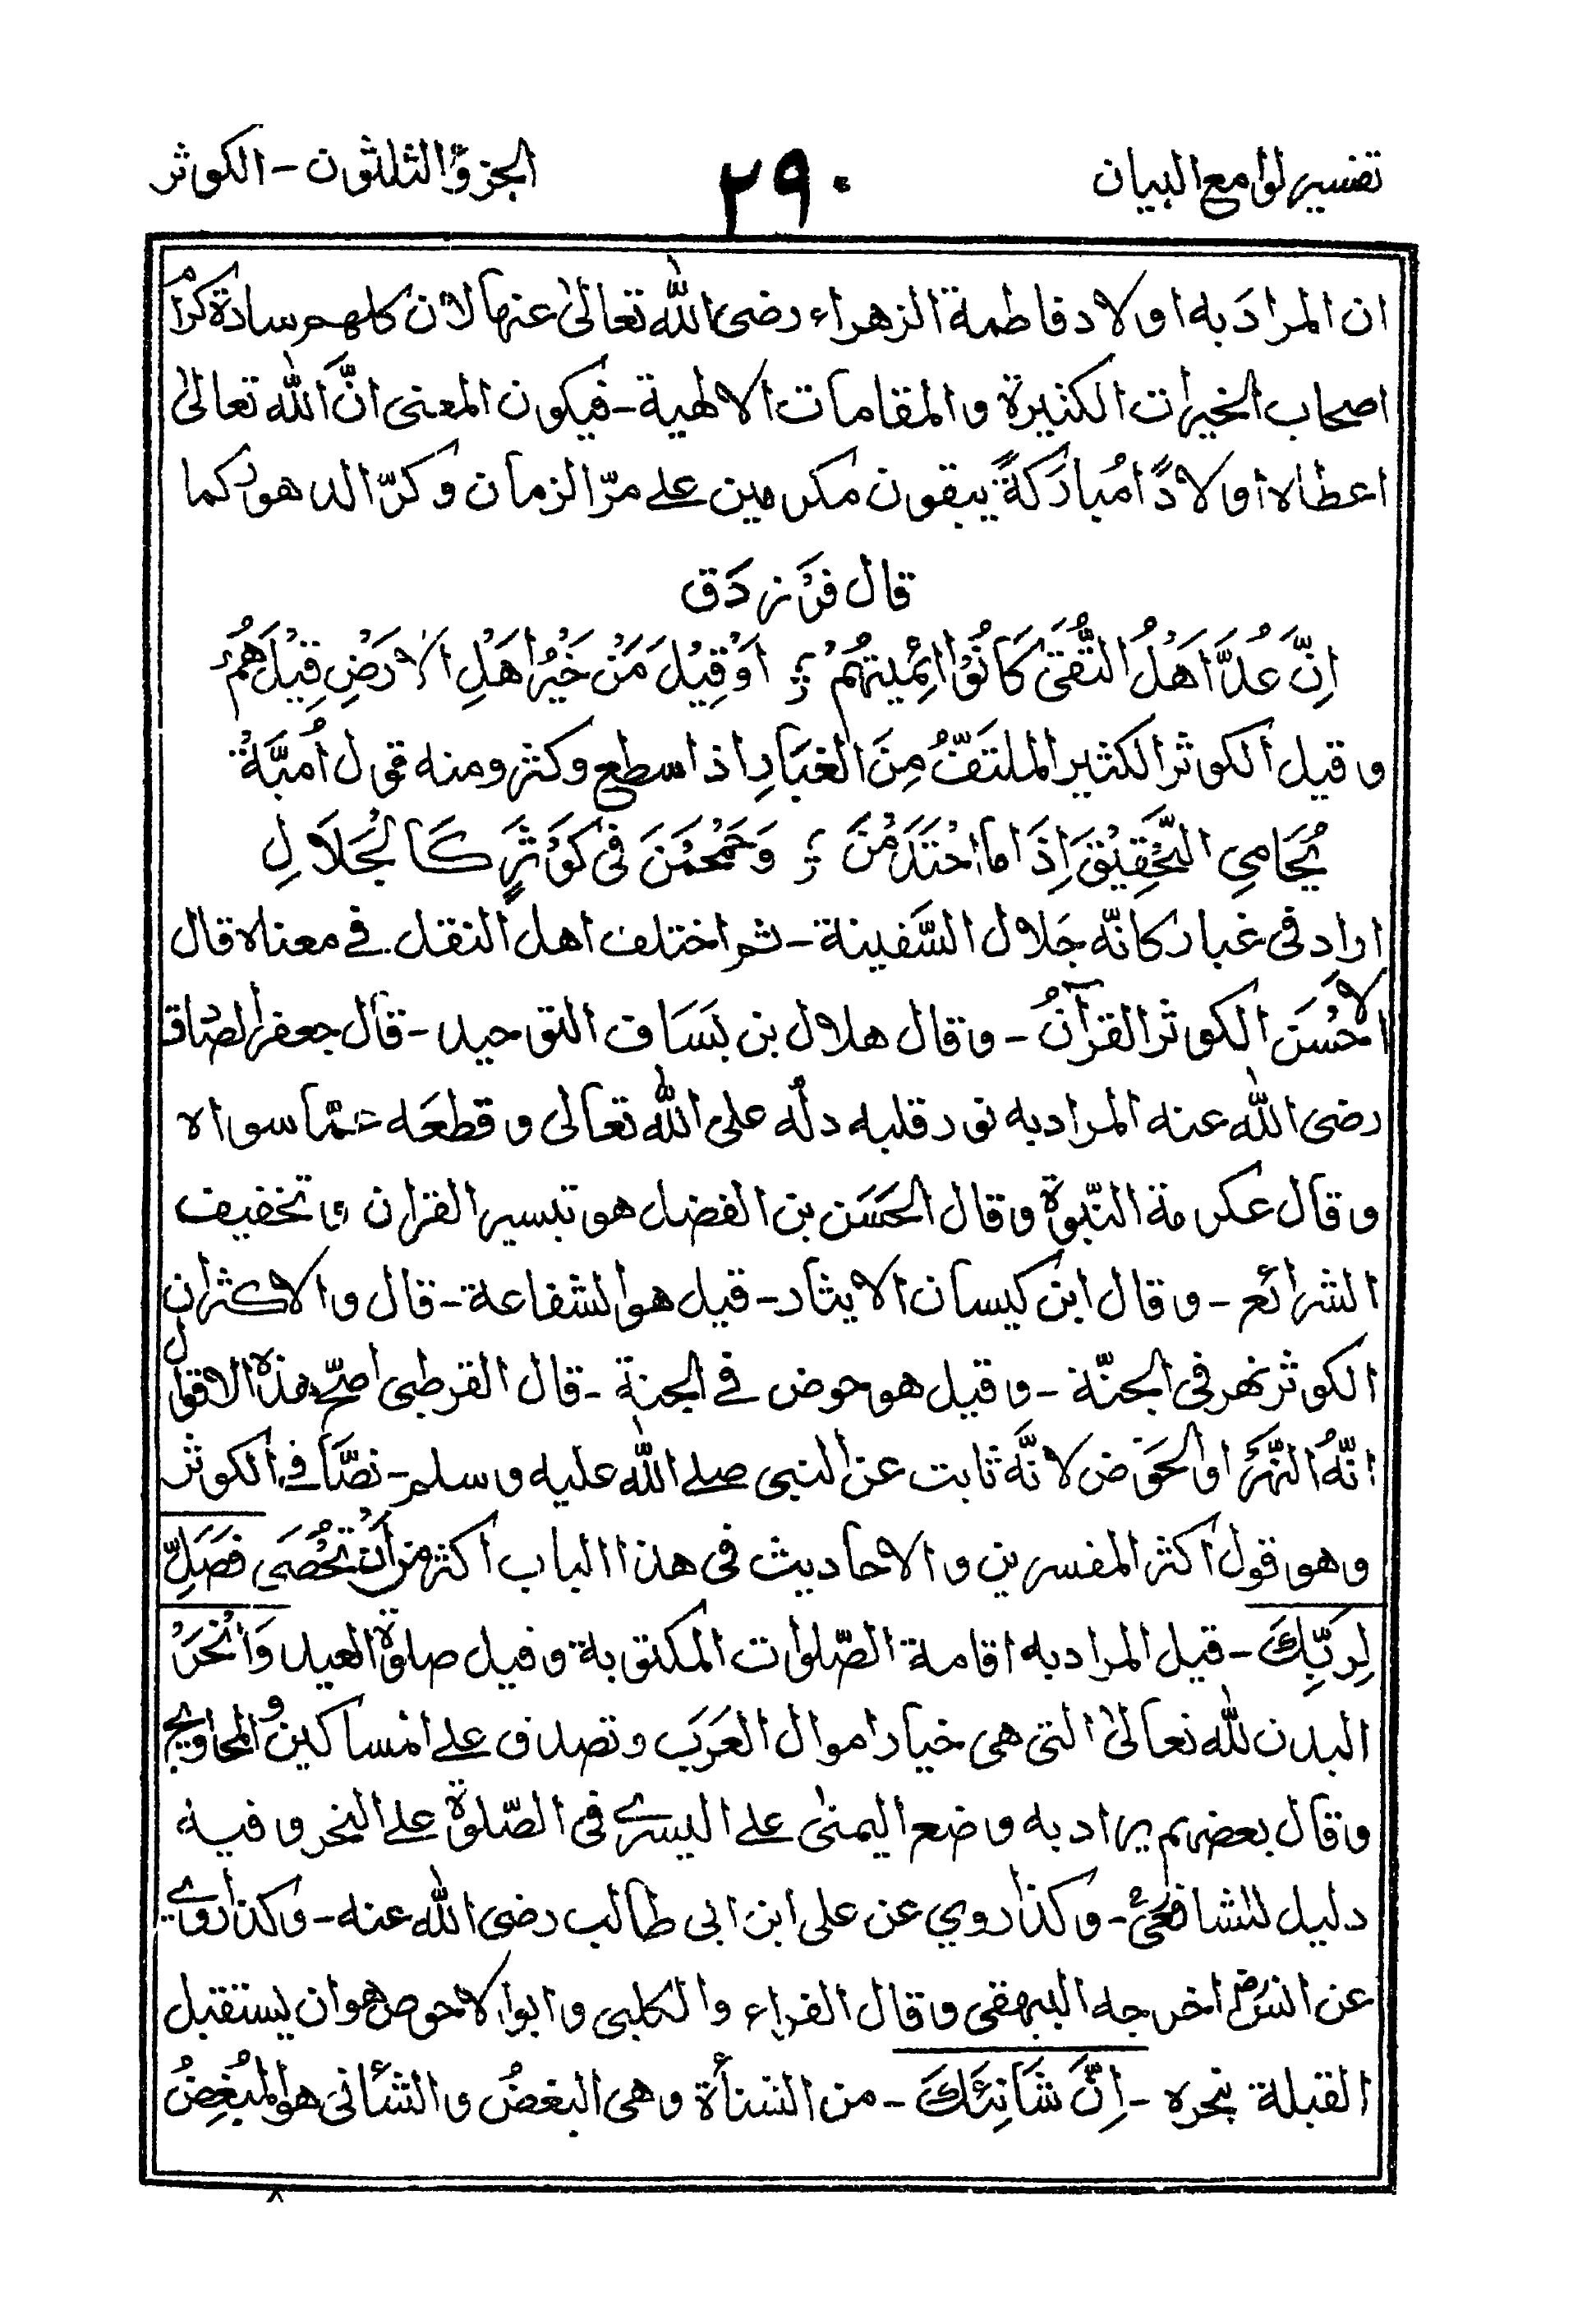 تفسير لوامع البيان
٢٩٠
الجزؤ الثلثون - الكوثر
ان المرادَ به اولاد فاطمة الزهراء رضى الله تعالىٰ عنها لان كلهم سادة كرام
اصحاب الخيرات الكثيرة والمقامات الالهية - فيكون المعنى انَّ الله تعالىٰ
اعطاه اولادًا مُبارَكةً يبقون مكرمين على مرّ الزمان وكرّ الدهور كما
قال فرزدق
اِنَّ عُدَّ اَهْلُ التُّقَىٰ كَانُوْا ائِمَّيتهُمْ ؛ اَوْ قِيْلَ مَنْ خَيْرُ اَهْلِ الْاَرْضِ قِيْلَ هُمُ
وقيل الكوثر الكثير الملتَفُّ مِنَ الغبَارِ اذا سطع وكثر ومنه قول اُمیَّةُ
يُحَامِي الْحَقِيْقَ اِذَا ما احْتَدَمْنَ ؛ وَحَمْحَمْنَ فى كَوْثَرٍ كَالْجَلَالِ
اراد فى غبار كانّه جَلال السَّفينة - ثم اختلف اهل النقل فى معناه قال
الاحَسَن الكوثر القرآنُ - وقال هلال بن يَسَاف التوحيد - قال جعفر الصادق
رضى الله عنه المراد به نور قلبه دلّه على الله تعالى وقطعَه عمّا سواه
وقال عكرمة النّبوة وقال الحَسَن بن الفضل هو تيسير القران وتخفيف
الشرائع - وقال ابن كيسان الايثار - قيل هو الشفاعة - قال والاكثران
الكوثر نهر فى الجنّة - وقيل هو حوض فى الجنة - قال القرطبى اصحّ هذه الاقوال
انّهُ النّهَرُ او الحَوض لانَّه ثابت عن النبى صلى الله عليه وسلم - نصًّا فى الكوثر
وهو قول اكثر المفسرين والاحاديث فى هذا الباب اكثر من أَنْ تُحْصَى فَصَلِّ
لِرَبِّكَ - قيل المراد به اقامة الصّلوات المكتوبة وقيل صلوة العيد وَانْحَرْ
البدن لله تعالىٰ التى هى خيار اموال العَرَب وتصدق على المساكين والمحاويج
وقال بعضهم يراد به وضع اليمنىٰ على اليسرے فى الصّلوة على النحر وفيه
دليل للشافعى - وكذا روي عن على ابن ابى طالب رضى الله عنه - وكذا روے
عن انسؓ اخرجه البيهقى وقال الفراء والكلبى وابو الاحوص هو ان يستقبل
القبلة بنحره - اِنَّ شَانِئَكَ - من الشنأة وهى البغضُ والشانى هو المُبْغِضُ